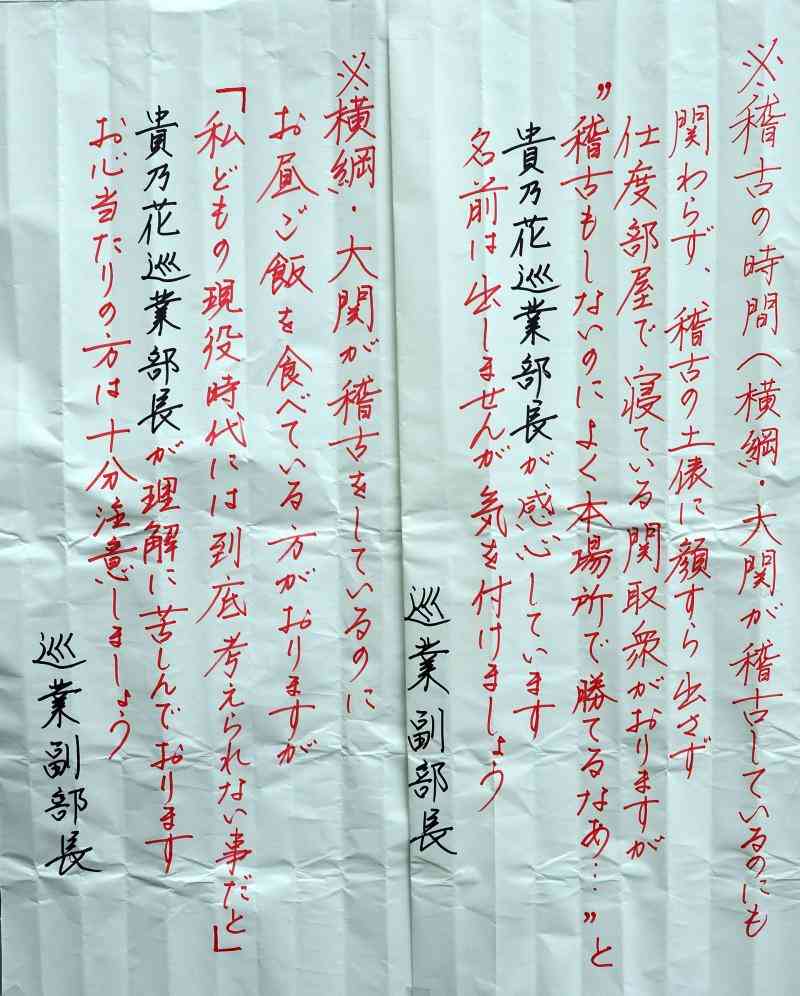 ※稽古の時間へ横綱・大関が稽古しているのにも
関わらず、稽古の土俵に顔すら出さず
仕度部屋で寝ている関取衆がおりますが
”稽古もしないのによく本場所で勝てるなあ…”と
貴乃花巡業部長が感心しています
名前は出しませんが気を付けましょう
巡業副部長
※横綱・大関が稽古をしているのに
お昼ご飯を食べている方がおりますが
「私どもの現役時代には到底考えられない事だと」
貴乃花巡業部長が理解に苦しんでおります
お心当たりの方は十分注意しましょう
巡業副部長